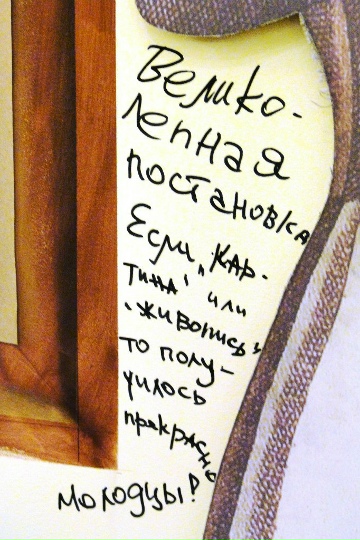 Велико-
лепная
постановка
Если „кар-
тина" или
"живопись"
то полу-
училось
прекрасно
молодцы!